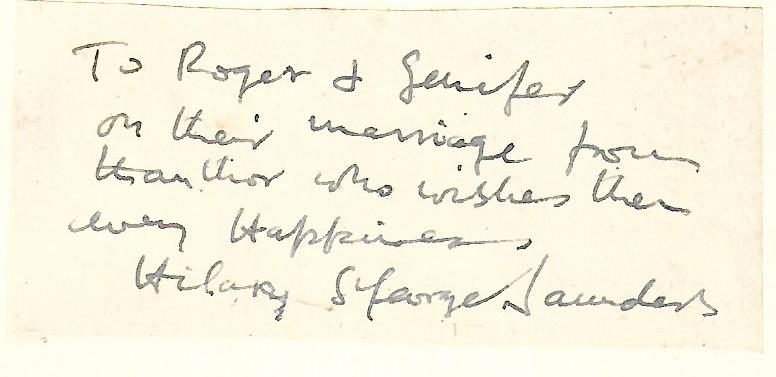 To Roger & Genifer
on their marriage from
the author who wishes them
every Happiness
Hilary St George Saunders